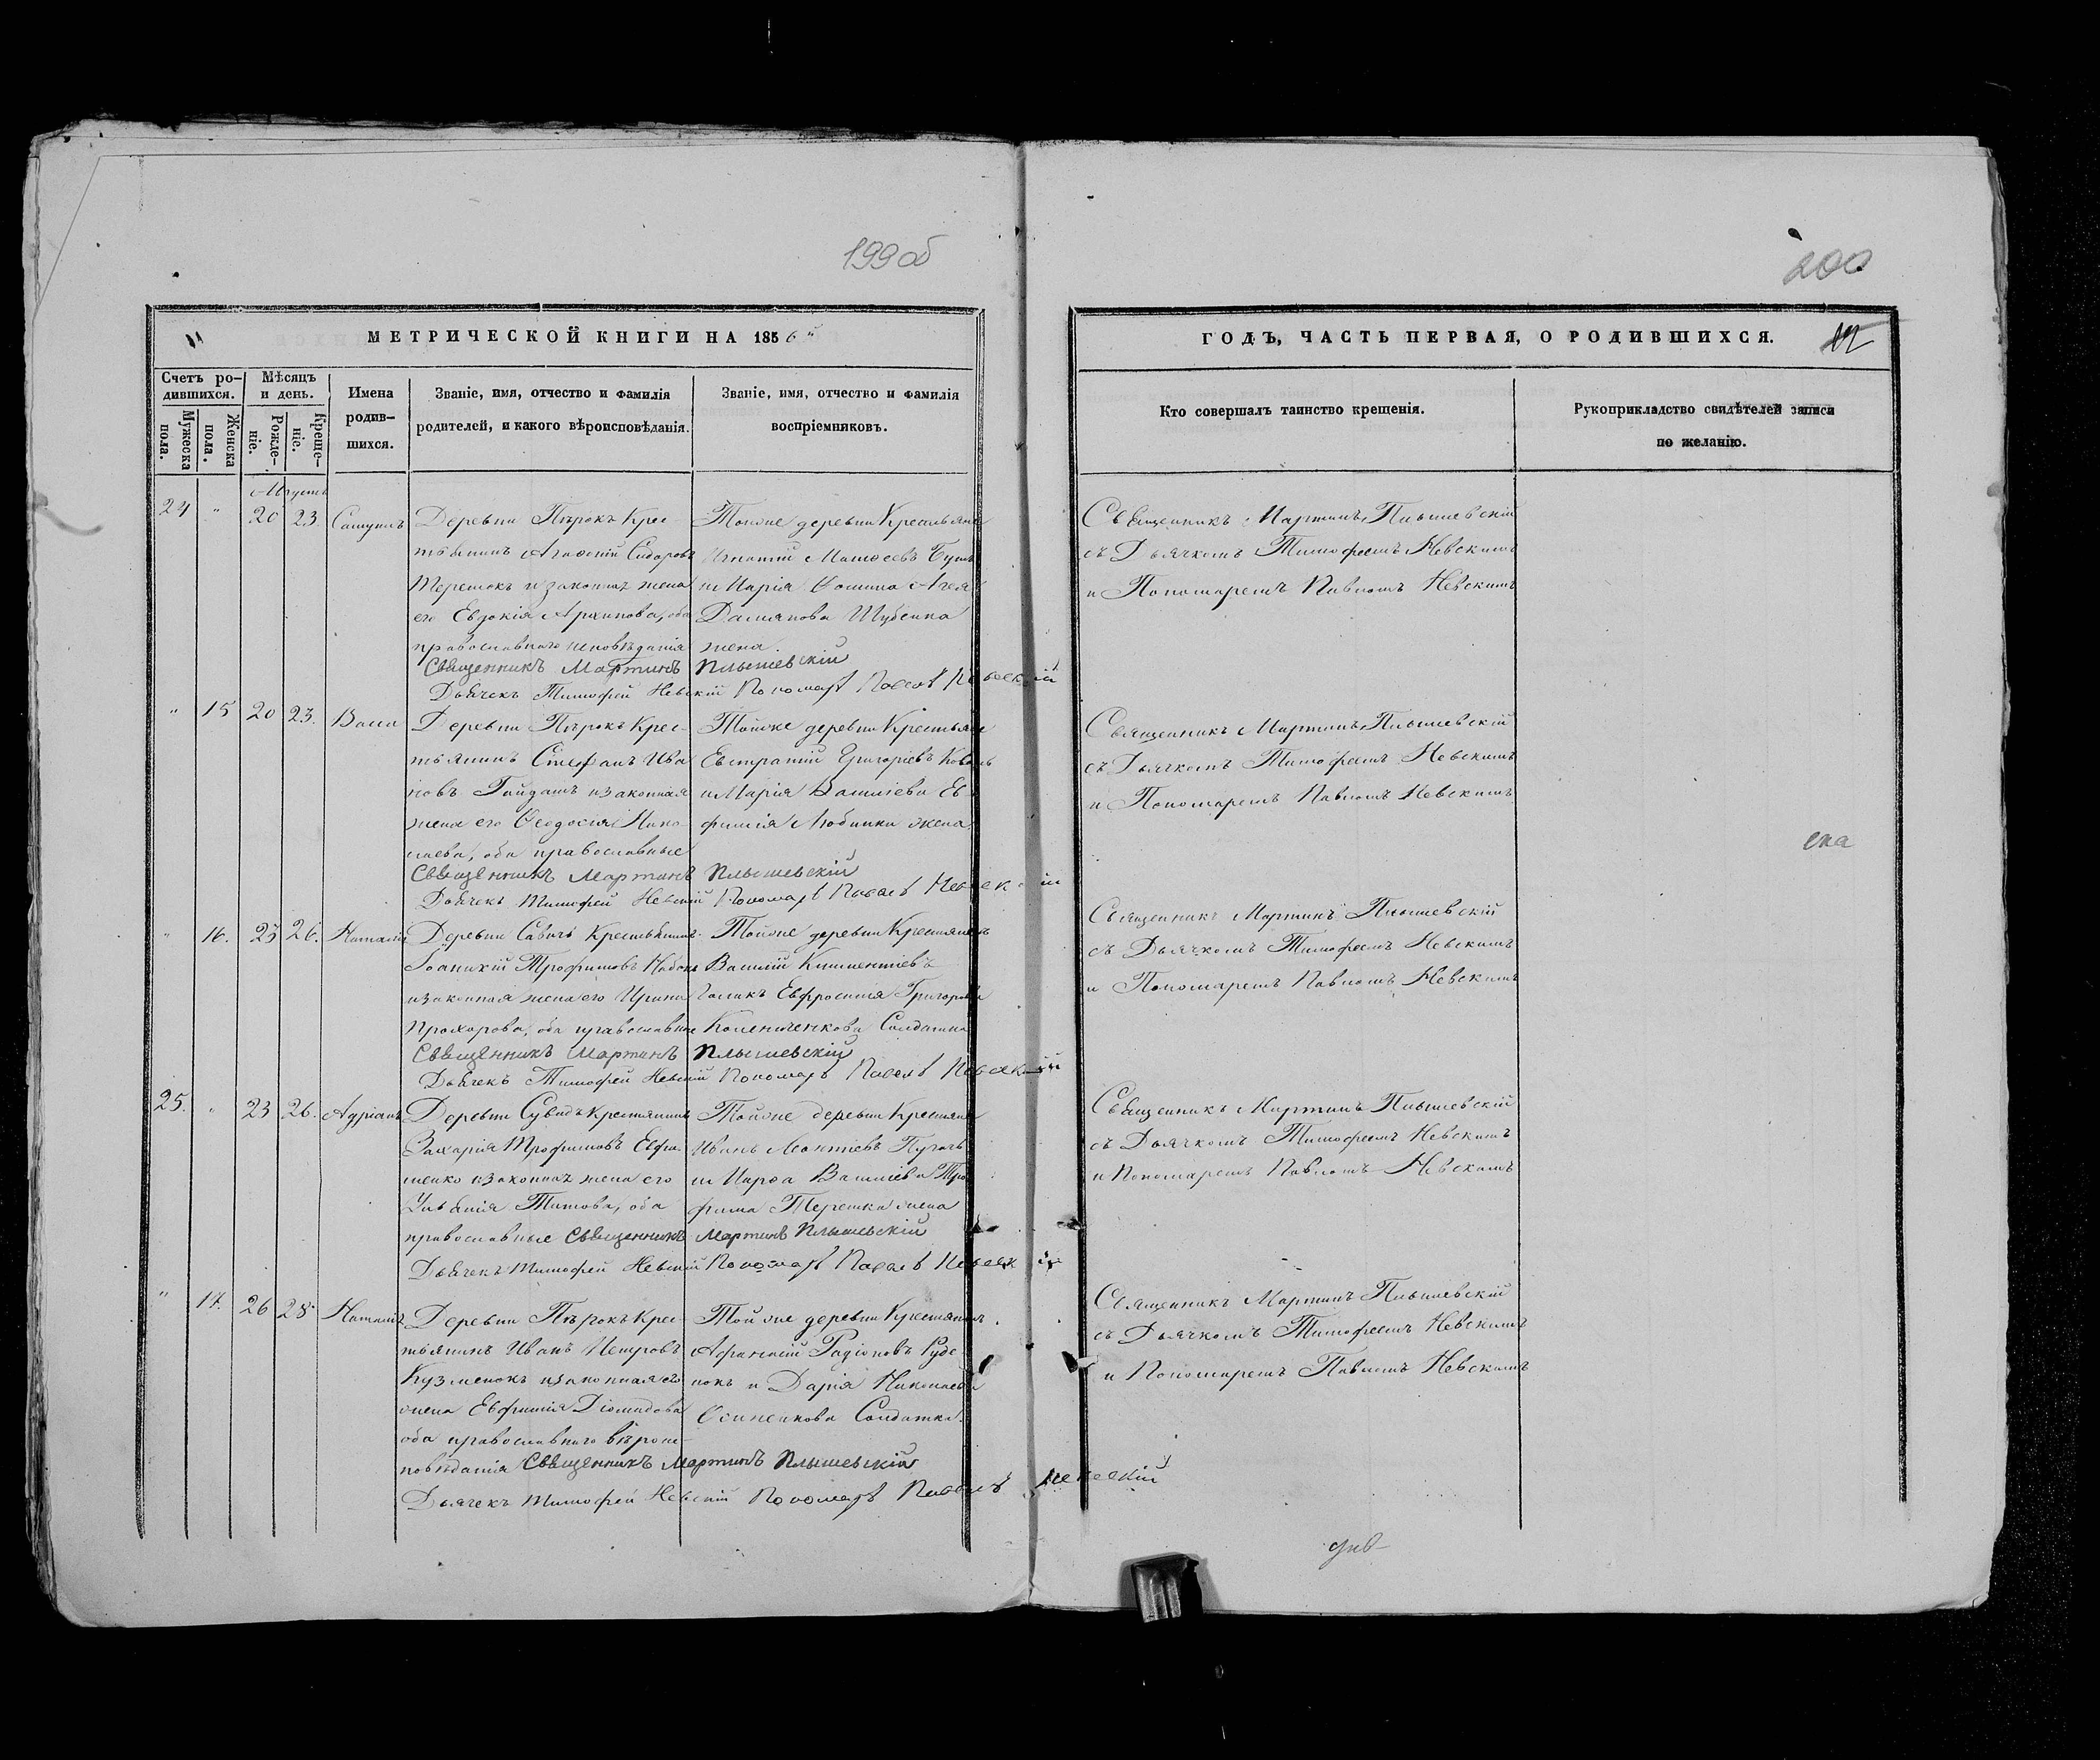 199 об
11
МЕТРИЧЕСКОЙ КНИГИ НА 1856й
Счетъ ро-
дившихся.
Мужеска
пола.
Женска
пола.
Мѣсяцъ
и день.
Рожде-
ніе.
Креще-
ніе.
Имена
родив-
шихся.
Званіе, имя, отчество и фамилія
родителей, и какого вѣроисповѣданія.
Званіе, имя, отчество и фамилія
воспріемниковъ.
Августъ
24 " 20 23 Самуилъ
Деревни Пѣрокъ Крес-
тьянинъ Агафоній Сидоровъ
Терешокъ и законная жена
его Евдокія Архипова, оба
православнаго исповѣданія
Тойже деревни Крестьяне
Игнатій Матѳеевъ
и Марія Ѳомина
Даміанова Шубенка
жена.
Священникъ Мартинъ Плышевскій
Дьячекъ Тимофей Невскій Пономарь Павелъ Невскій
" 15 20 23. Васса
Деревни Пѣрокъ Крес-
тьянинъ Стефанъ Ива
новъ Гайдашъ и законная
жена его Ѳеодосія Нико-
лаева, оба православные
Тойже деревни Крестьяне
Евстратій Григоріевъ Коваль
и Марія Василіева Ев-
фимія Любинки жена.
Священникъ Мартинъ Плышевскій
Дьячекъ Тимофей Невскій Пономарь Павелъ Невскій
" 16. 23 26. Наталія
Деревни Савичъ Крестьянинъ
Іоаникій Трофимовъ Набокъ
и законная жена его Ирина
Прохорова, оба православные
Тойже деревни Крестянинъ
Василій Климентіевъ
Галакъ Евфросинія Григорьева
Коленченкова Солдатка
Священникъ Мартинъ Плышевскій
Дьячекъ Тимофей Невскій Пономарь Павелъ Невскій
25. " 23 26. Адріанъ
Деревни Сувидъ Крестянинъ
Захарія Трофимовъ Евфи-
менко и законная жена его
Уліанія Титова, оба
православные
Тойже деревни Крестяне
Иванъ Леонтіевъ Пугачъ
и Марѳа Василіева Тро
фима Терешка жена
Священникъ Мартинъ Плышевскій
Дьячекъ Тимофей Невскій Пономарь Павелъ Невскій
" 17. 26 28 Наталія
Деревни Пѣрокъ Крес-
тьянинъ Иванъ Петровъ
Кузменокъ и законная его
жена Евфимія Діомидова
оба православнаго вѣроис-
повѣданія
Тойже деревни Крестянинъ
Афанасій Радіоновъ Руде
нокъ и Дарія Николаева
Осипенкова Солдатка.
Священникъ Мартинъ Плышевскій
Дьячекъ Тимофей Невскій Пономарь Павелъ Невскій
200
ГОДЪ, ЧАСТЬ ПЕРВАЯ, О РОДИВШИХСЯ.
12
Кто совершалъ таинство крещенія.
Рукоприкладство свидѣтелей записи
по желанію.
Священникъ Мартинъ Плышевскій
съ Дьячкомъ Тимофеемъ Невскимъ
и Пономаремъ Павломъ Невскимъ
Священникъ Мартинъ Плышевскій
съ Дьячкомъ Тимофеемъ Невскимъ
и Пономаремъ Павломъ Невскимъ
Священникъ Мартинъ Плышевскій
съ Дьячкомъ Тимофеемъ Невскимъ
и Пономаремъ Павломъ Невскимъ
Священникъ Мартинъ Плышевскій
съ Дьячкомъ Тимофеемъ Невскимъ
и Пономаремъ Павломъ Невскимъ
Священникъ Мартинъ Плышевскій
съ Дьячкомъ Тимофеемъ Невскимъ
и Пономаремъ Павломъ Невскимъ